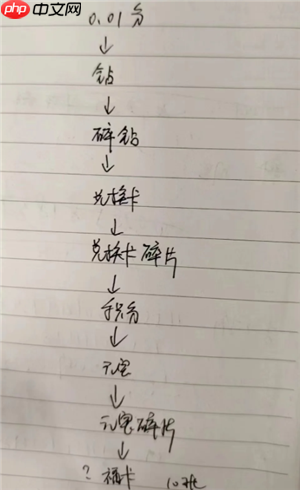 php 中文网
0.01分
↓
钻
↓
碎钻
↓
兑换卡
↓
兑换卡碎片
↓
积分
↓
元宝
↓
元宝碎片
↓
? 福卡